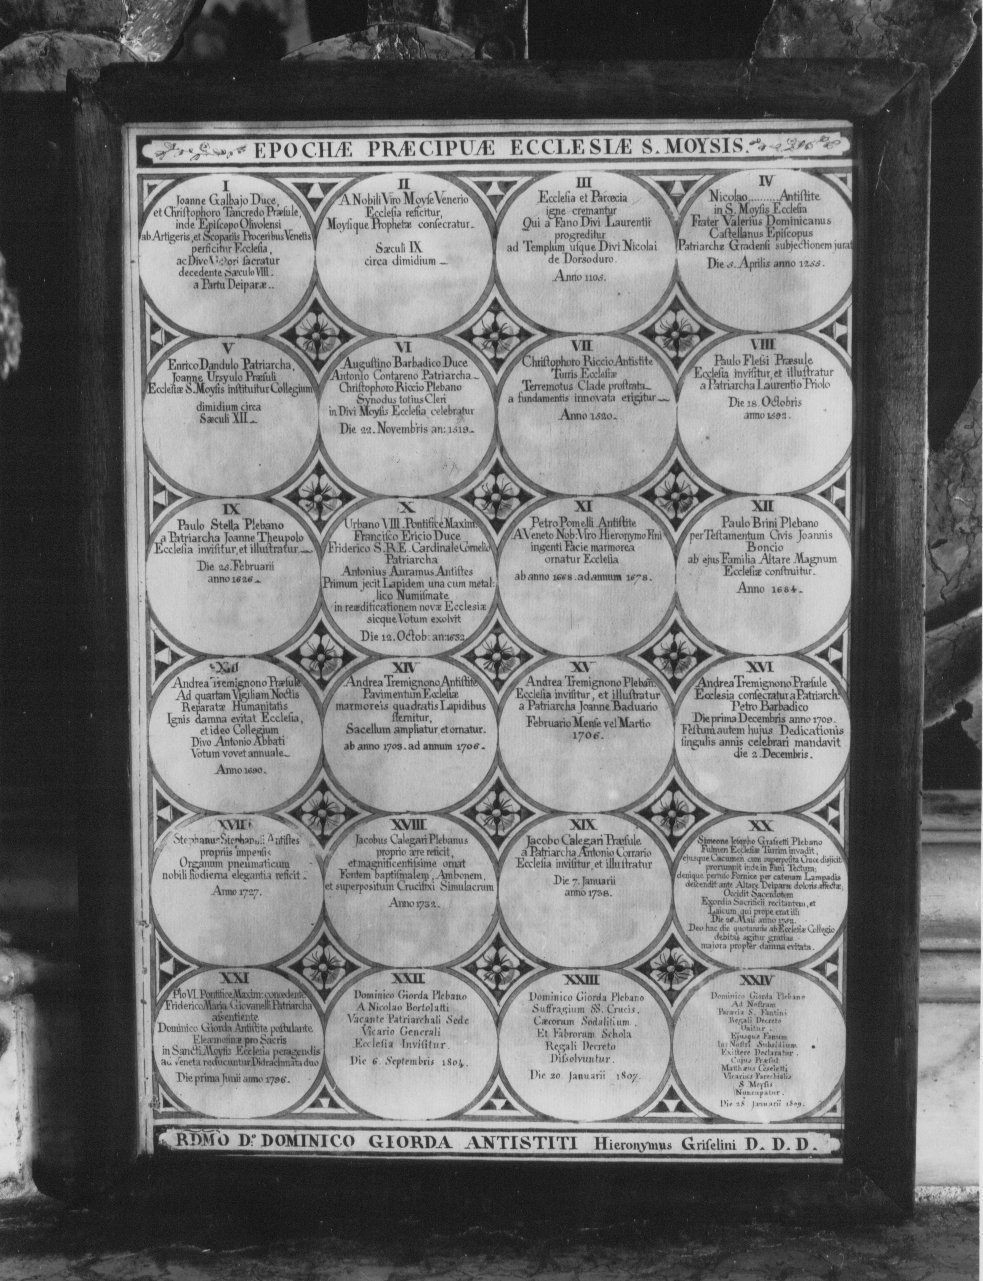 EPOCHÆ PRÆCIPUÆ ECCLESIÆ S. MOYSIS.
I
Joanne Galbajo Duce,
et Chriſtophoro Tancredo Præſule,
inde Epiſcopo Olivolensi
ab Artigeris, et Scopariis Proceribus Venetis
perficitur Eccleſia,
ac Divo Victori ſacratur
decedente Sæculo VIII.
a Partu Deiparæ.
II
A Nobili Viro Moyſe Venerio
Eccleſia reficitur,
Moyſique Prophetæ conſecratur.
Sæculi IX
circa dimidium
III
Eccleſia et Parœcia
igne cremantur
Qui a Fano Divi Laurentii
progreditur
ad Templum uſque Divi Nicolai
de Dorsoduro.
Anno 1105.
IV
Nicolao..........Antiſtite
in S. Moyſis Eccleſia
Frater Valerius Dominicanus
Caſtellanus Epiſcopus
Patriarchæ Gradenſi subjectionem jurat
Die 5. Aprilis anno 1255.
V
Enrico Dandulo Patriarcha,
Joanne Ursyulo Præſuli
Eccleſiæ S. Moyſis inſtituitur Collegium
dimidium circa
Sæculi XII.
VI
Auguſtino Barbadico Duce
Antonio Contareno Patriarcha
Chriſtophoro Riccio Plebano
Synodus totius Cleri
in Divi Moyſis Eccleſia celebratur
Die 22. Novembris an: 1519.
VII
Chriſtophoro Riccio Antiſtite
Turris Eccleſiæ
Terremotus Clade proſtrata
a fundamentis innovata erigitur
Anno 1520.
VIII
Paulo Fleſsi Præsule
Eccleſia inviſitur, et illuſtratur
a Patriarcha Laurentio Priolo
Die 18. Octobris
anno 1592.
IX
Paulo Stella Plebano
a Patriarcha Joanne Theupolo
Eccleſia inviſitur, et illuſtratur.
Die 25. Februarii
anno 1626.
X
Urbano VIII. Pontifice Maxim:
Franciſco Ericio Duce
Friderico S.R.E. Cardinale Cornelio
Patriarcha
Antonius Auramus Antiſtes
Primum jecit Lapidem una cum metal:
lico Numiſmate
in reædificationem novæ Eccleſiæ
sicque Votum exolvit
Die 12. Octob: an: 1632.
XI
Petro Pomelli Antiſtite
A Veneto Nob: Viro Hieronymo Fini
ingenti Facie marmorea
ornatur Eccleſia
ab anno 1668. ad annum 1678.
XII
Paulo Brini Plebano
per Teſtamentum Civis Joannis
Boncio
ab ejus Familia Altare Magnum
Eccleſiæ conſtruitur.
Anno 1684.
XIII
Andrea Tremignono Præſule
Ad quartam Vigiliam Noctis
Reparatæ Humanitatis
Ignis damna evitat Eccleſia,
et ideo Collegium
Divo Antonio Abbati
Votum vovet annuale
Anno 1690.
XIV
Andrea Tremignono Antiſtite
Pavimentum Eccleſiæ
marmoreis quadratis Lapidibus
ſternitur,
Sacellum ampliatur et ornatur.
ab anno 1703. ad annum 1706.
XV
Andrea Tremignono Pleban:
Eccleſia inviſitur, et illuſtratur
a Patriarcha Joanne Baduario
Februario Menſe vel Martio
1706.
XVI
Andrea Tremignono Præſule
Eccleſia conſecratur a Patriarch:
Petro Barbadico
Die prima Decembris anno 1709.
Feſtum autem hujus Dedicationis
ſingulis annis celebrari mandavit
die 2. Decembris.
XVII
Stephanus Stephanoli Antiſtes
propriis impenſis
Organum pneumaticum
nobili hodierna elegantia reficit.
Anno 1727.
XVIII
Jacobus Calegari Plebanus
proprio ære reficit,
et magnificentiſsime ornat
Fontem baptiſmalem, Ambonem,
et superpositum Crucifixi Simulacrum
Anno 1732.
XIX
Jacobo Calegari Præſule
a Patriarcha Antonio Corrario
Eccleſia inviſitur et illuſtratur
Die 7. Januarii
anno 1738.
XX
Simeone Joſepho Graſsetti Plebano
Fulmen Eccleſiæ Turrim invadit,
ejusque Cacumen cum superpoſita Cruce disjicit
prorumpit inde in Fani Tectum;
denique pervio Fornice per catenam Lampadis
deſcendit ante Altare Deiparæ doloris affectæ,
Occidit Sacerdotem
Exordia Sacrificii recitantem, et
Laicum qui prope erat illi
Die 26. Maii anno 1752.
Deo hac die quotannis ab Eccleſiæ Collegio
debitas agitur gratias
majora propter damna evitata.
XXI
Pio VI. Pontifice Maxim: concedente
Friderico Maria Giovanelli Patriarcha
aſsentiente
Dominico Giorda Antiſtite poſtulante
Eleæmoſinæ pro Sacris
in Sancti Moyſis Eccleſia peragendis
ad Veneta reducuntur Didrachmata duo
Die prima Junii anno 1796.
XXII
Dominico Giorda Plebano
A Nicolao Bortolatti
Vacante Patriarchali Sede
Vicario Generali
Eccleſia Inviſitur.
Die 6. Septembris 1804.
XXIII
Dominico Giorda Plebano
Suffragium SS. Crucis.
Cæcorum Sodalitium.
Et Fabrorum Schola
Regali Decreto
Diſsolvuntur.
Die 20 Januarii 1807.
XXIV
Dominico Giorda Plebano
Ad Noſtram
Parœcia S. Fantini
Regali Decreto
Unitur.
Ejusque Fanum
In Noſtri Subsidium
Exiſtere Declaratur.
Cujus Præſul
Matthæus Ceseletti
Vicarius Parochialis
S. Moyſis
Nuncupatur.
Die 28. Januarii 1809.
RDMO D.º DOMINICO GIORDA ANTISTITI Hieronymus Griſelini D. D. D.